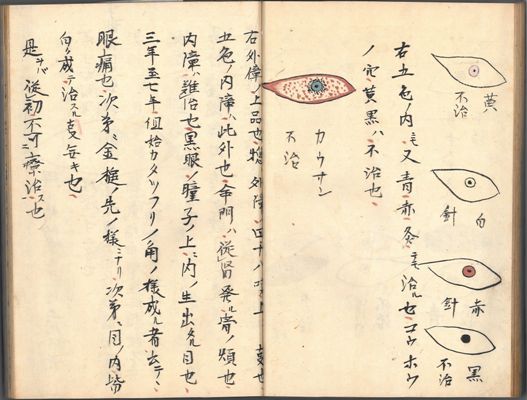 黄
不治
白
針
赤
針
黒
不治
右五色ノ内ニモ又青赤灸ニテモ治ル也コウホウ
ノ穴黄黒ハ不治也
カウサン
不治
右外障ノ上品也惣外障四十八
五色ノ内障ハ此外也命門ハ従腎発ル膏ノ類也
内障ハ難治也黒眼ノ瞳子ノ上ニ内ノ生出タル目也
三年至七年値始カタツフリノ角ノ様成ル者去テ
眼上痛也次第ニ金槌ノ先ノ様ニナリ次第ニ目ノ内皆
白ク成テ治スル夏無キ也
是ヲハ従初不可療治ス也